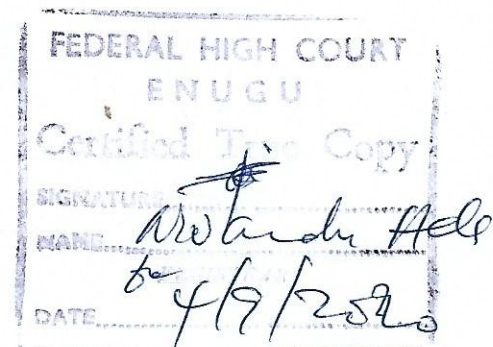 FEDERAL HIGH COURT
ENUGU
Certified True Copy
SIGNATURE
NAME
for
DATE 4/9/2020